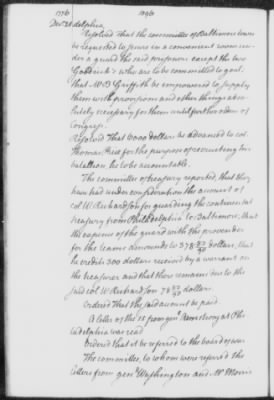 1776 1096
Decr 21 adelphia
Resolved That the committee of Baltimore town
be requested to procure a convenient room un-
der a guard the said prisoners except the two
Goodricks who are to be committed to gaol.
that Mr. D Griffith be empowered to supply
them with provisions and other things abso-
lutely necessary for them until farther orders of
Congress.
Resolved That 6000 dollars be advanced to col
Thomas Price for the purpose of recruiting his
batallion, he to be accountable.
The committee of treasury reported, that they
have had under consideration the account of
col W. Richardson for guarding the continental
treasury from Philadelphia to Baltimore, that
the expence of the guard with the provender
for the teams amounts to 378 82/90 dollars, that
he credits 300 dollars received by a warrant on
the treasurer and that there remains due to the
said col W Richardson 78 82/90 dollars.
Ordered That the said account be paid.
A letter of the 15 from genl Armstrong at Phi-
ladelphia was read
Ordered that it be referred to the board of war
The committee, to whom were referred the
letters from genl Washington and Mr Morris